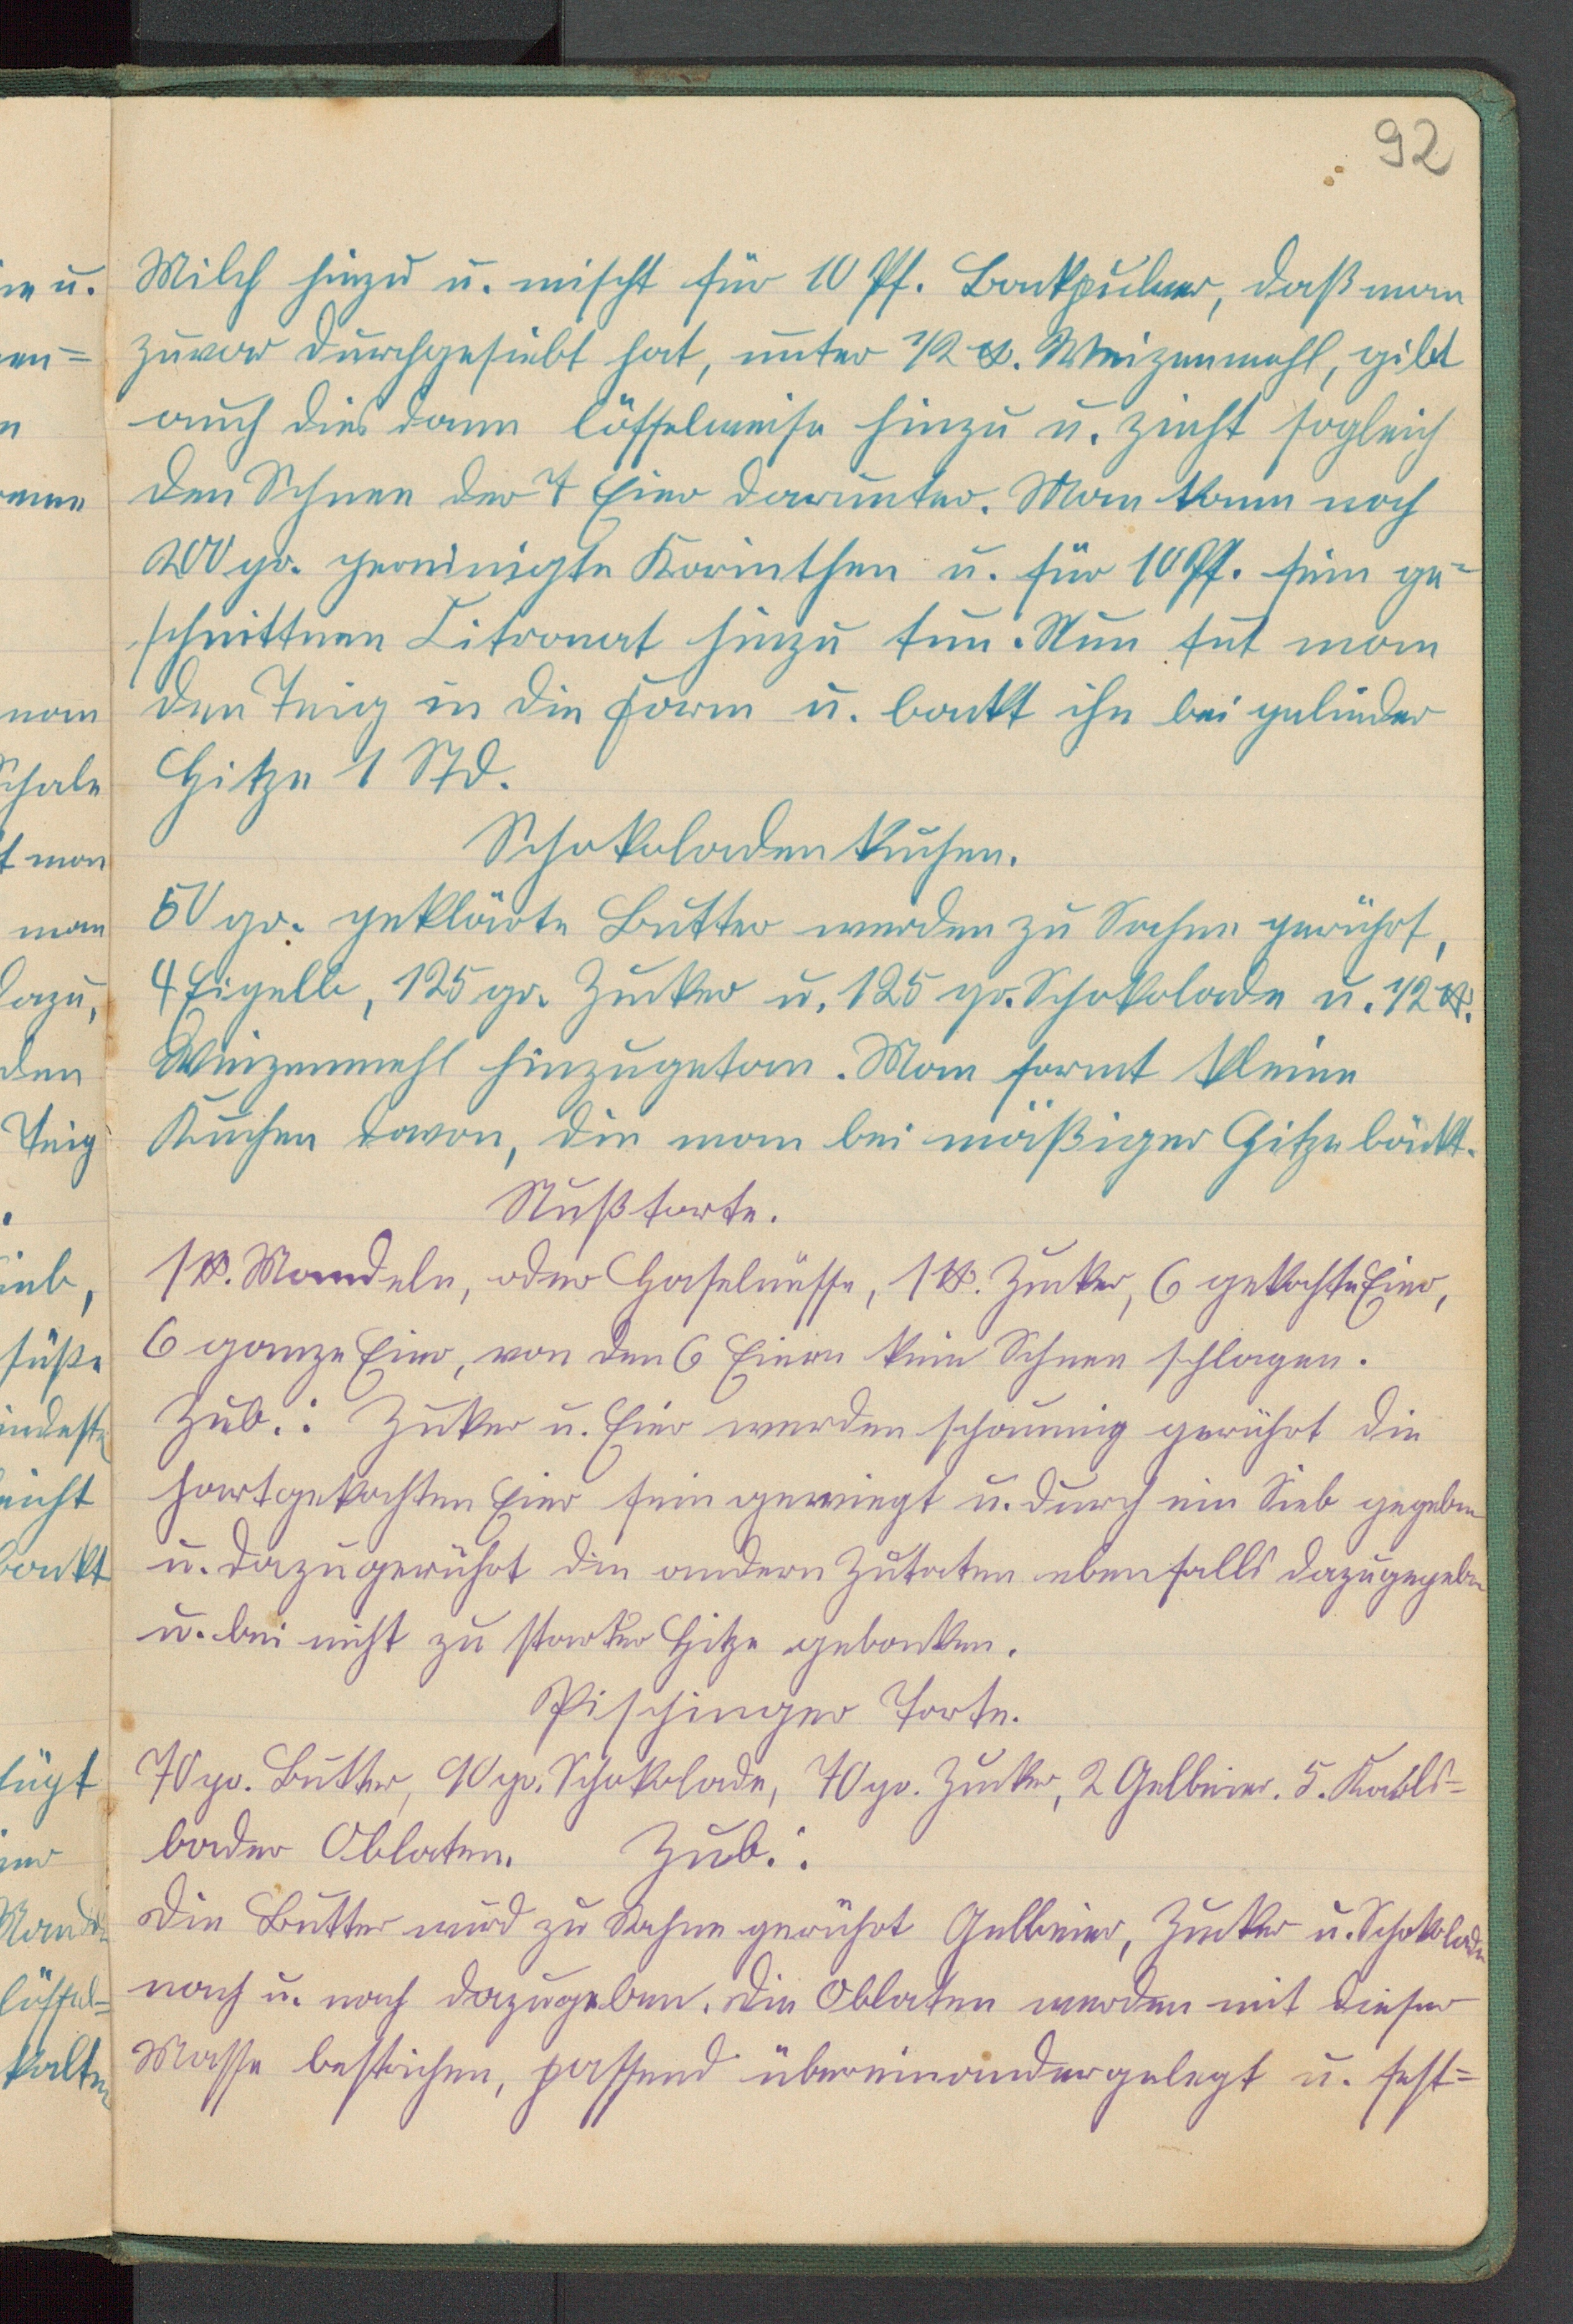 92
Milch hinzu u. mischt für 10 Pf. Backpulver, daß man
zuvor durchgesiebt hat, unter 1/2 ℔. Weizenmehl, gibt
auch dies dann löffelweise hinzu u. zieht sogleich
den Schnee der 4 Eier darunter. Man kann noch
200 gr. gereinigte Korinthen u. für 10 Pf. fein ge-
schnittnen Citronat hinzu tun. Nun tut man
den Teig in die Form u. backt ihn bei gelinder
Hitze 1 Std.
Schokoladenkuchen.
50 gr. geklärte Butter werden zu Sahne gerührt,
4 Eigelb, 125 gr. Zucker u. 125 gr. Schokolade u. 1/2 ℔.
Weizenmehl hinzugetan. Man formt kleine
Kuchen davon, die man bei mäßiger Hitze bäckt.
Nußtorte.
1 ℔. Mandeln, oder Haselnüsse, 1 ℔. Zucker, 6 gekochte Eier,
6 ganze Eier, von den 6 Eiern kein Schnee schlagen.
Zub.: Zuker u. Eier werden schaumig gerührt die
hartgekochten Eier fein gewiegt u. durch ein Sieb gegeben
u. dazugerührt die andern Zutaten ebenfalls dazugegeben
u. bei nicht zu starker Hitze gebacken.
Pischinger Torte.
70 gr. Butter, 90 gr. Schokolade, 70 gr. Zucker, 2 Gelbeier. 5. Karls-
bader Oblaten. Zub.:
Die Butter wird zu Sahne gerührt Gelbeier, Zucker u. Schokolade
nach u. nach dazugeben. Die Oblaten werden mit dieser
Masse bestrichen, passend übereinandergelegt u. fest-